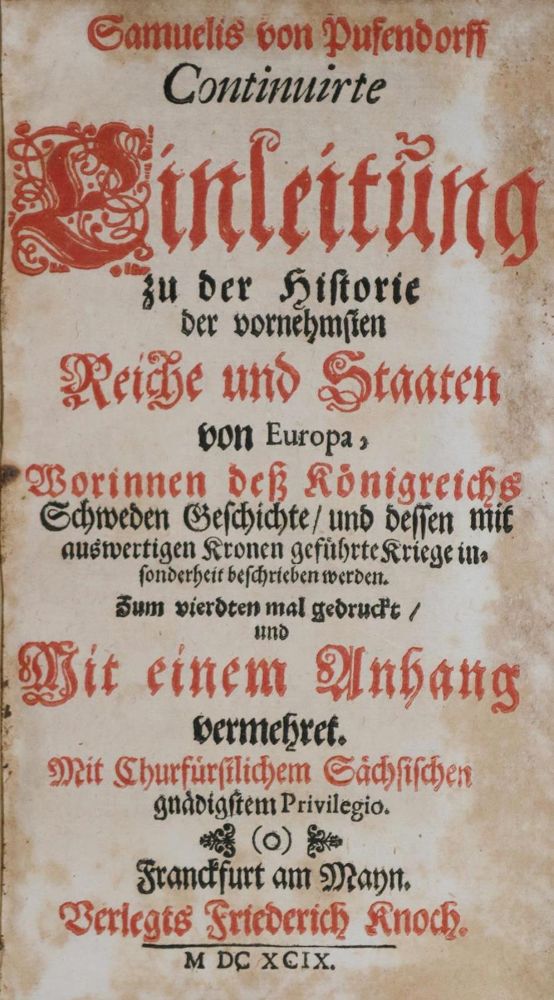 Samuelis von Pufendorff
Continuirte
Einleitũng
zu der Historie
der vornehmsten
Reiche und Staaten
von Europa,
Worinnen deß Königreichs
Schweden Geschichte/ und dessen mit
auswertigen Kronen geführte Kriege in-
sonderheit beschrieben werden.
Zum vierdten mal gedruckt/
und
Mit einem Anhang
vermehret.
Mit Churfürstlichem Sächsischen
gnädigstem Privilegio.
(O)
Franckfurt am Mayn.
Verlegts Friederich Knoch.
M DC XCIX.